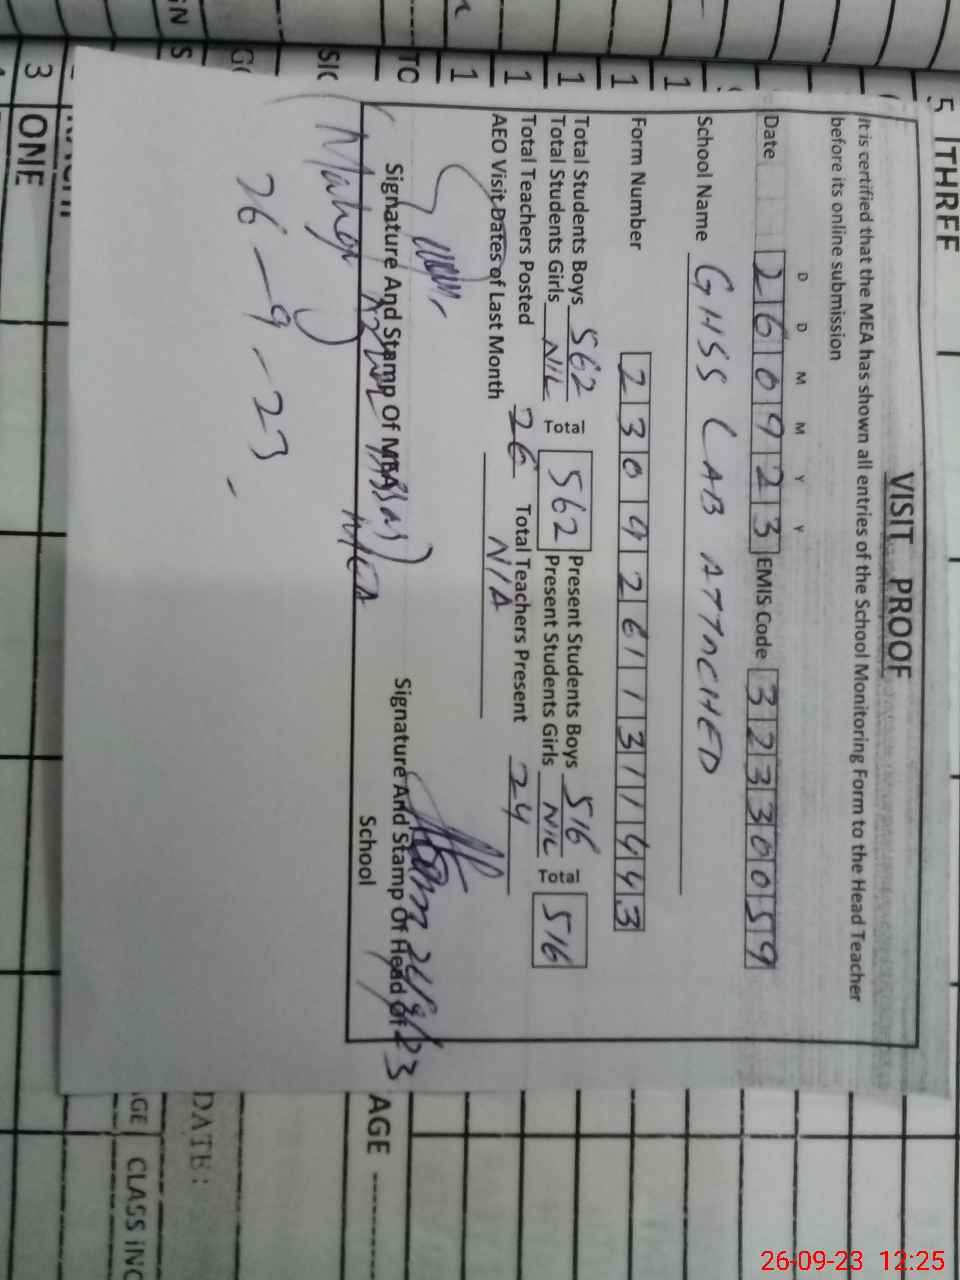 VISIT PROOF
It is certified that the MEA has shown all entries of the School Monitoring Form to the Head Teacher
before its online submission
D D M M Y Y
Date 260923 EMIS Code 32330059
School Name GHSS LAB ATTACHED
Form Number 2309261131143
Total Students Boys 562 Present Students Boys 516
Total 562 Total 516
Total Students Girls NIL Present Students Girls NIL
Total Teachers Posted 26 Total Teachers Present 24
AEO Visit Dates of Last Month N/A
Signature And Stamp Of MEA Signature And Stamp Of Head Of
School
MEA
26-9-23
5 THREE
3 ONE
AGE
DATE:
CLASS INC
26-09-23 12:25